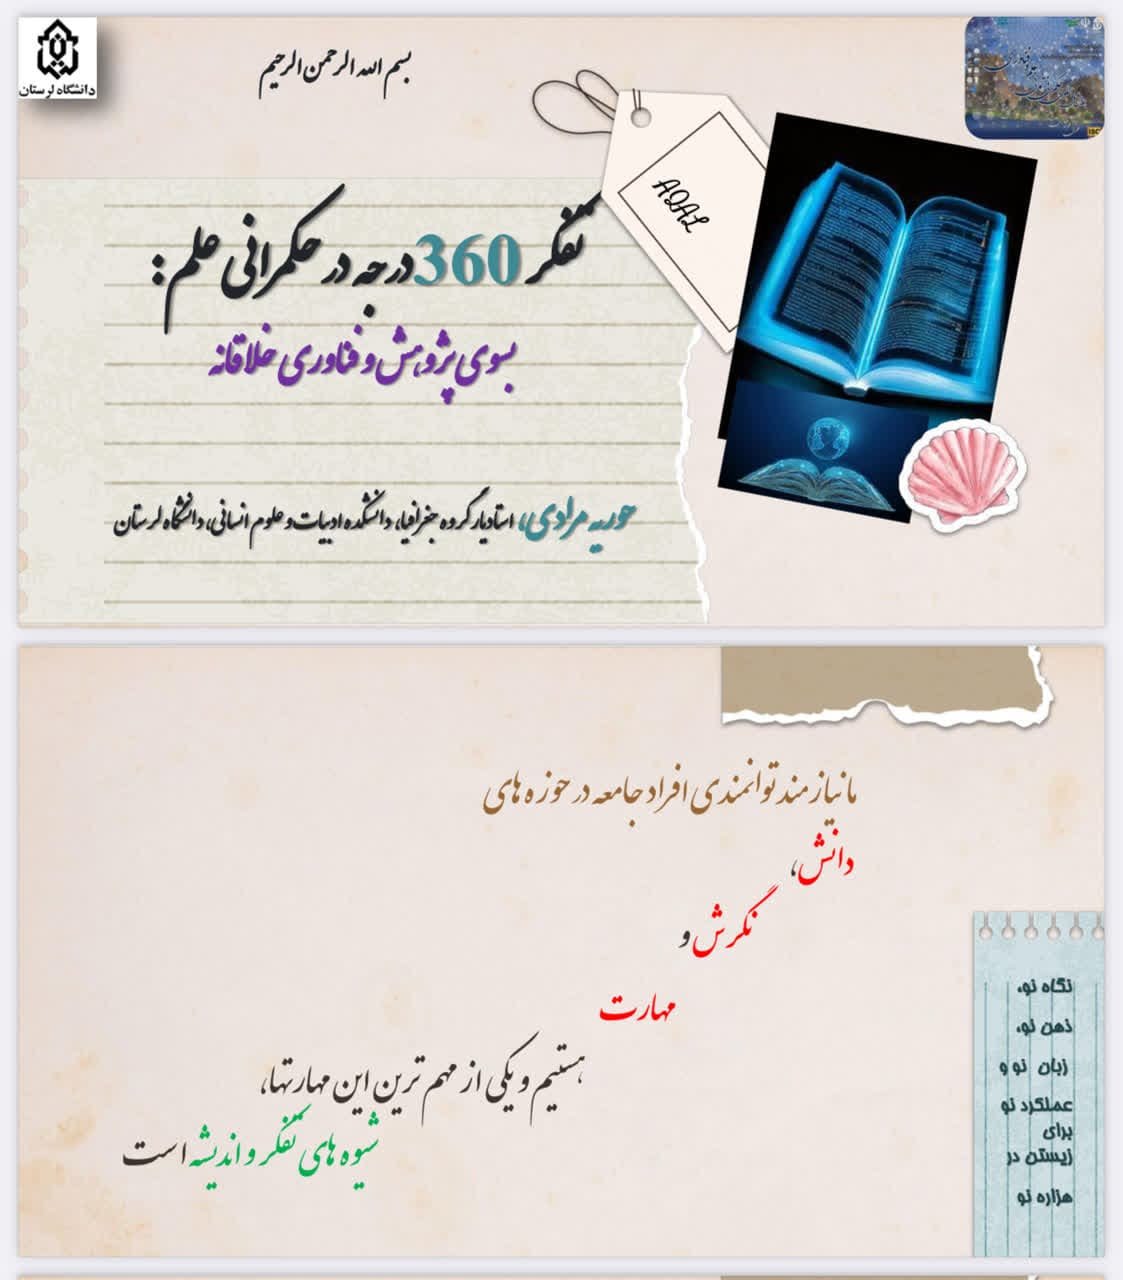 دانشگاه لرستان
بسم الله الرحمن الرحیم
ISC
AQAL
تفکر 360 درجه در حکمرانی علم:
بسوی پژوهش و فناوری خلاقانه
حوریه مرادی، استادیار گروه جغرافیا، دانشکده ادبیات و علوم انسانی، دانشگاه لرستان
ما نیازمند توانمندی افراد جامعه در حوزه های
دانش،
نگرش و
مهارت
هستیم و یکی از مهم ترین این مهارتها،
شیوه های تفکر و اندیشه است
نگاه نو،
ذهن نو،
زبان نو و
عملکرد نو
برای
زیستن در
هزاره نو